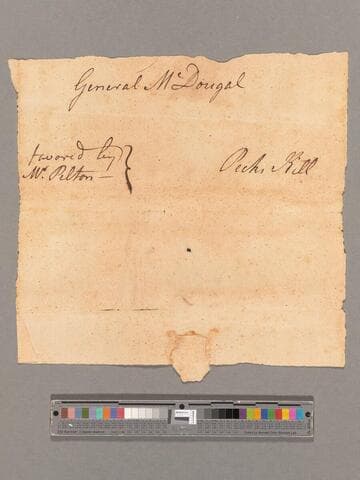 General McDougal
favored by
Mr. Pelton —
Peeks Kill